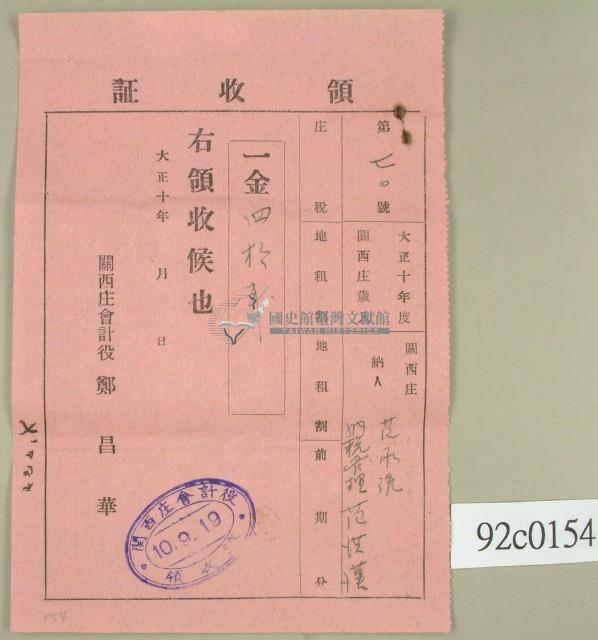 領收証
第七〇號
大正十年度
關西庄歲
關西庄
納人
范
納稅管理 范洪漢
庄稅
地租割
地租割
前期分
一金四拾
右領收候也
大正十年 月 日
關西庄會計役 鄭昌華
關西庄會計役
10.9.19
領收
國史館臺灣文獻館
TAIWAN HISTORICA
92c0154
154